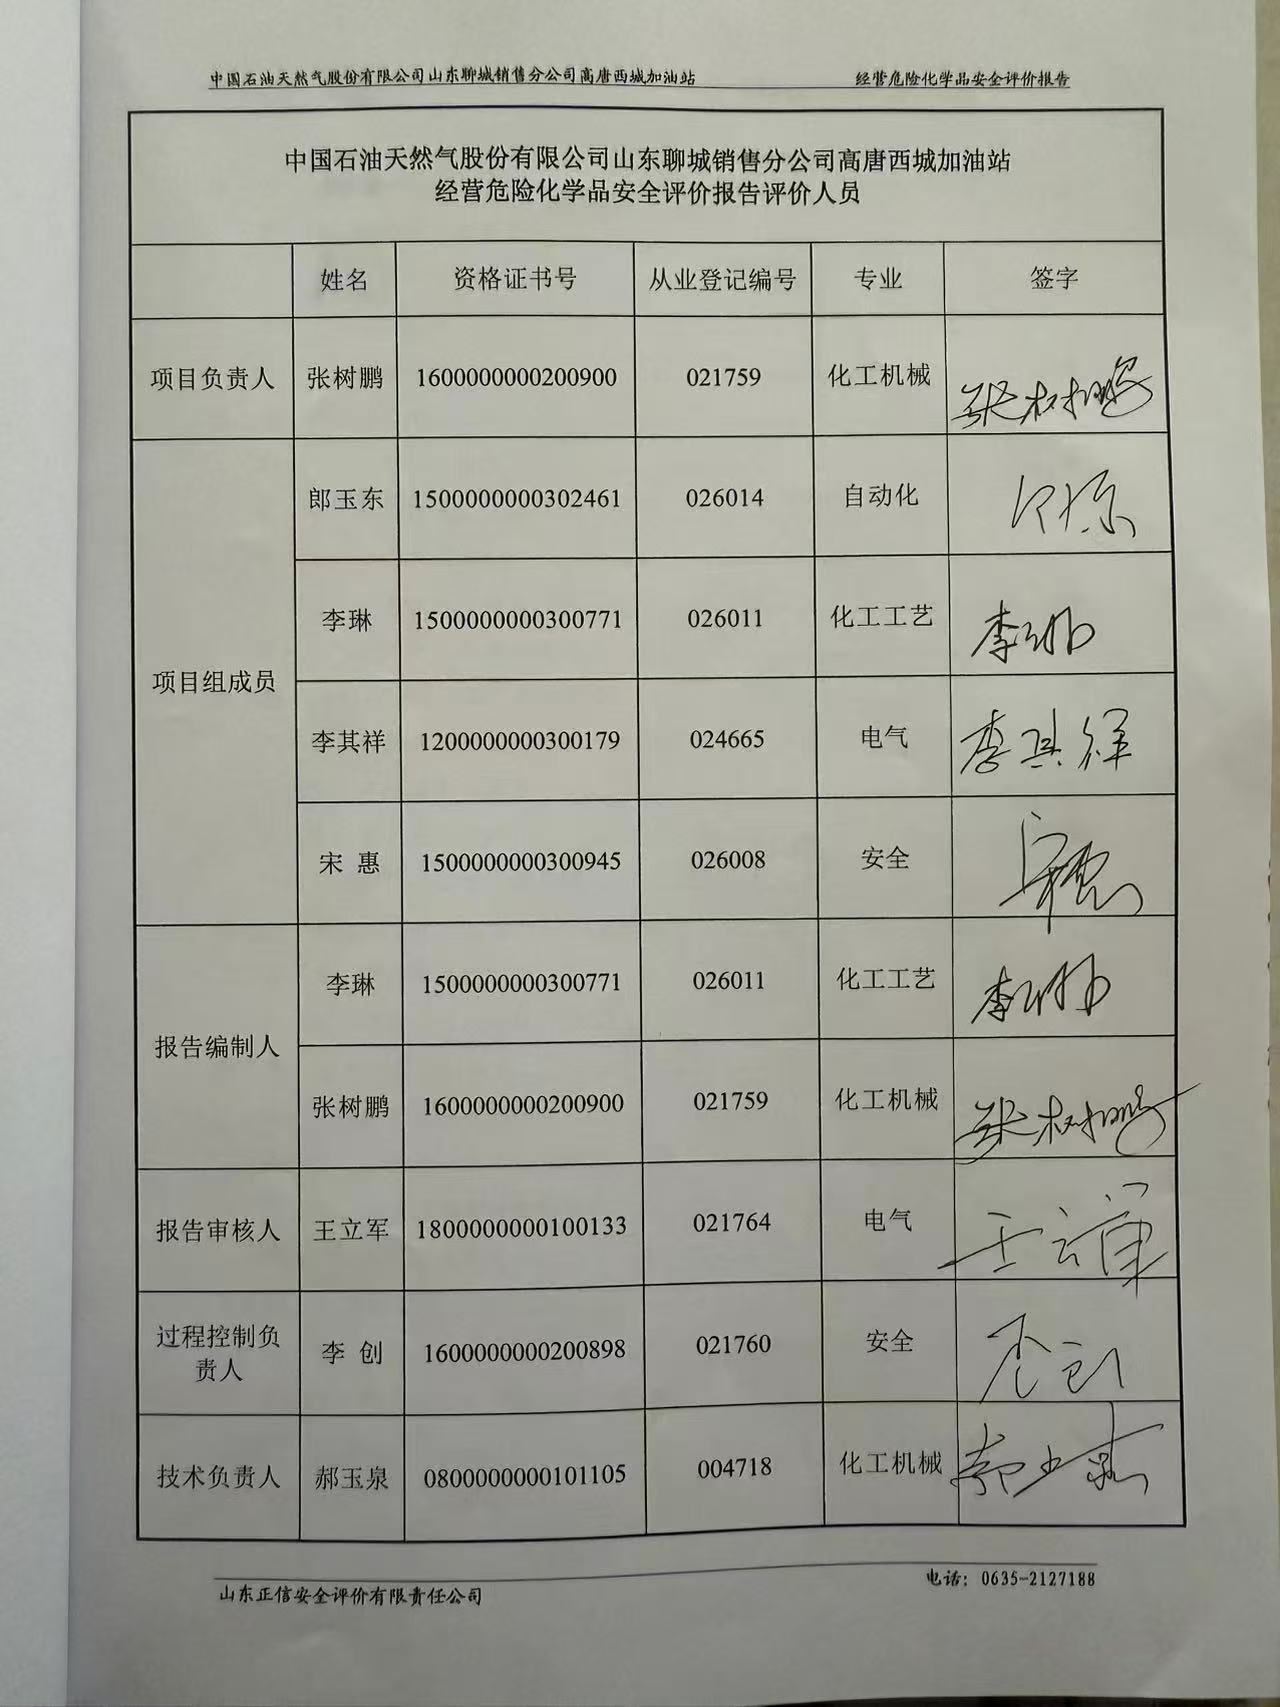 中国石油天然气股份有限公司山东聊城销售分公司高唐西城加油站 经营危险化学品安全评价报告
中国石油天然气股份有限公司山东聊城销售分公司高唐西城加油站
经营危险化学品安全评价报告评价人员
姓名 资格证书号 从业登记编号 专业 签字
项目负责人 张树鹏 1600000000200900 021759 化工机械 张树鹏
项目组成员
郎玉东 1500000000302461 026014 自动化
李琳 1500000000300771 026011 化工工艺 李琳
李其祥 1200000000300179 024665 电气 李其祥
宋 惠 1500000000300945 026008 安全 宋惠
报告编制人
李琳 1500000000300771 026011 化工工艺 李琳
张树鹏 1600000000200900 021759 化工机械 张树鹏
报告审核人 王立军 1800000000100133 021764 电气 王立军
过程控制负
责人
李 创 1600000000200898 021760 安全 李创
技术负责人 郝玉泉 0800000000101105 004718 化工机械 郝玉泉
山东正信安全评价有限责任公司 电话：0635-2127188